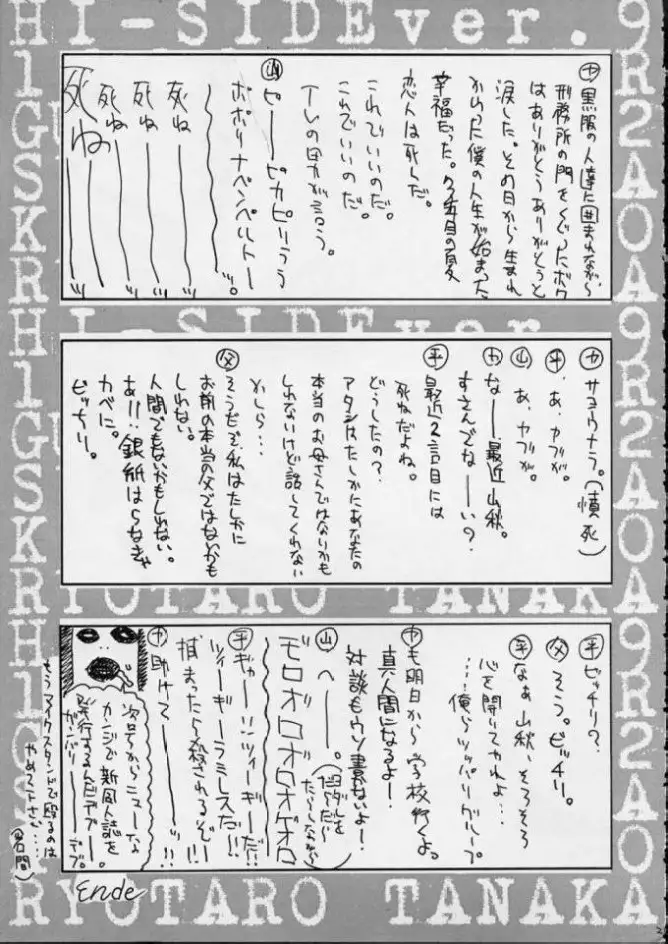 HI-SIDEver.9
㋳黒服の人達に囲まれながら
刑務所の門をくぐったボク
はありがとうありがとうと
涙した。その日から生まれ
かわった僕の人生が始まった
幸福だった。
恋人は死んだ。
これでいいのだ。
これでいいのだ。
TVの男が言う。
㊀ピ――ピカピリうう
ポポリナペンペルト――ッ。
死ね――ッ
死ね――ッ
死ね――ッ
死ね――ッ
HI-SIDEver.
㋕サヨウナラ。(憤死)
㋫あ、ヤブが。
㊀あ、ヤブが。
㋕な――最近山秋。
すさんでな――い?
㋫最近2言目には
死ねだよね。
どうしたの?
アタシはたしかにあなたの
本当のお母さんではないかも
しれないけど話してくれない
かしら…
㋠そうだぞ私はたしかに
お前の本当の父ではないかも
しれない。
人間でもないかもしれない。
あ!!銀紙はらなきゃ
カベに。
ビッチリ。
RYOTARO TANAKA
ビッチリ?
そう。ビッチリ。
なあ山秋、そろそろ
心を開いてくれよ…
……俺らツッパリグループ
も明日から学校行くよ。
真人間になるよー!
対談もウソ書かないよー!
へ――。
モロオロオロオゲロ
ギャー!!ツィーギーだ!!
ツィーギーラミレスだ!!
捕まったら殺されるぞー!!
助けて――ッ!!
次号からニューな
カンジで新同人誌を
発行するんだデブー。
ガンバリ――デブ。
もうマイクスタンドで殴るのは
やめて下さい…
Ende
RYOTARO TANAKA